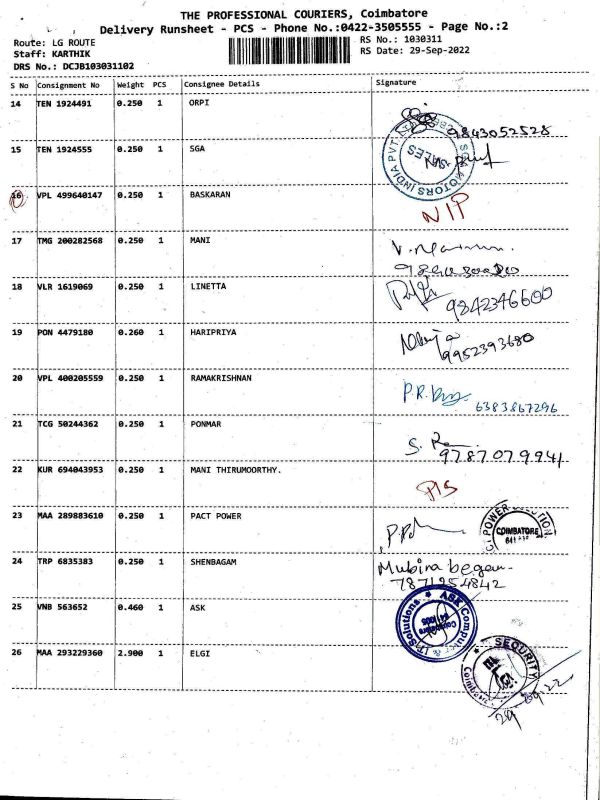 THE PROFESSIONAL COURIERS, Coimbatore
Delivery Runsheet - PCS - Phone No.:0422-3505555 - Page No.:2
Route: LG ROUTE RS No.: 1030311
Staff: KARTHIK RS Date: 29-Sep-2022
DRS No.: DCJB103031102
S No Consignment No Weight PCS Consignee Details Signature
14 TEN 1924491 0.250 1 ORPI
9843052528
15 TEN 1924555 0.250 1 SGA
MOTORS INDIA PVT SALES
16 VPL 499640147 0.250 1 BASKARAN
NIP
17 TMG 200282568 0.250 1 MANI
18 VLR 1619069 0.250 1 LINETTA
9842346600
19 PON 4479180 0.260 1 HARIPRIYA
9952393680
20 VPL 400205559 0.250 1 RAMAKRISHNAN
P.R.
6383867296
21 TCG 50244362 0.250 1 PONMAR
S.
9787079941
22 KUR 694043953 0.250 1 MANI THIRUMOORTHY.
23 MAA 289883610 0.250 1 PACT POWER
POWER COIMBATORE
24 TRP 6835383 0.250 1 SHENBAGAM
Mubina begam
7871254842
25 VNB 563652 0.460 1 ASK
ASK Computer & IT Solutions Coimbatore
26 MAA 293229360 2.900 1 ELGI
SECURITY Coimbatore
29/09/22